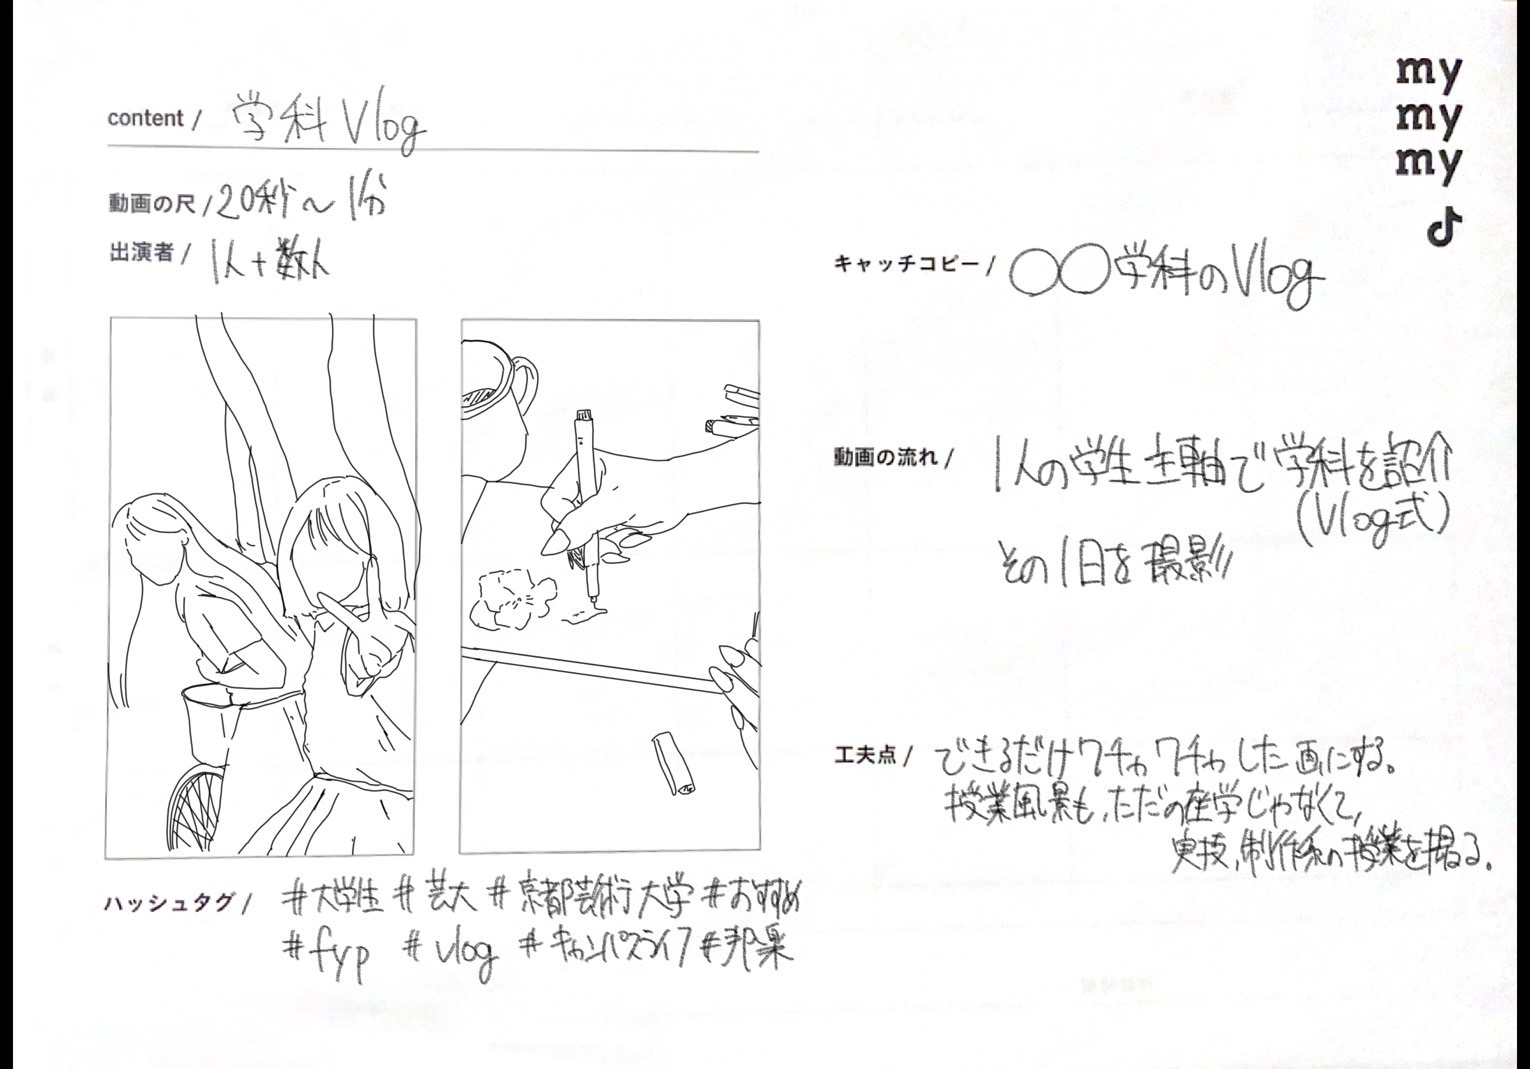 content / 学科Vlog
動画の尺 / 20秒〜1分
出演者 / 1人+数人
ハッシュタグ / #大学生 #芸大 #京都芸術大学 #おすすめ
#fyp #vlog #キャンパスライフ #邦楽
my
my
my
キャッチコピー / ○○学科のVlog
動画の流れ / 1人の学生主軸で学科を紹介
(Vlog式)
その1日を撮影
工夫点 / できるだけワチャワチャした画にする。
授業風景も、ただの座学じゃなくて、
実技、制作系の授業を撮る。